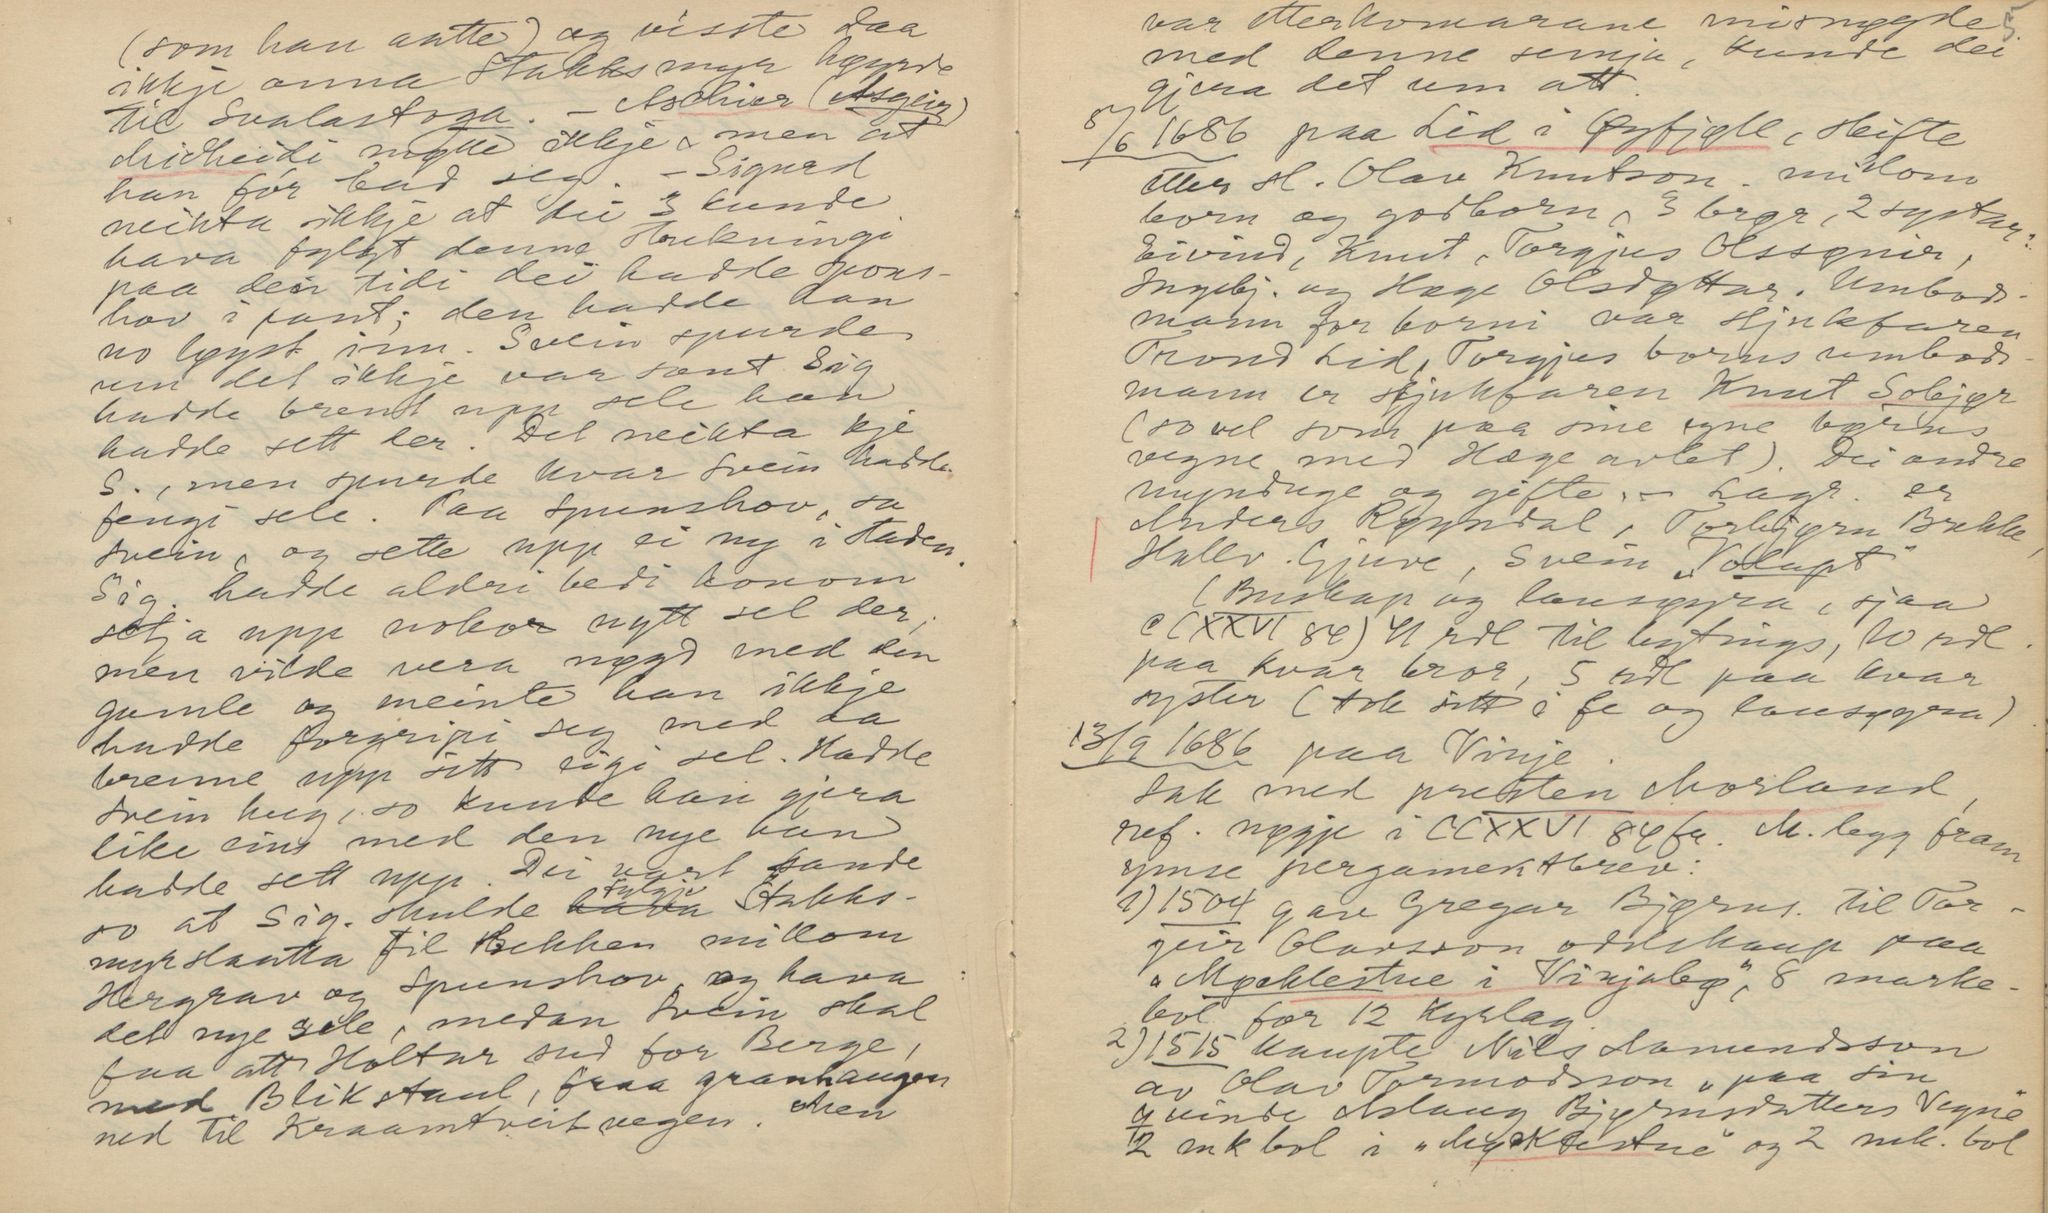 (som han aatte) og visste daa
ikkje anna Stakksmyr høyrde
til Svalastoga. – Aschier (Asgeir)
Midheidi møtte ikkje, men at
han fór bad seg. – Sigurd
neikta ikkje at dei 3 kunde
hava fylgt denne
paa dein tidi dei hadde Spons-
hov i pant; den hadde han
no løyst inn. Svein spurde
um det ikkje var sant Sig
hadde brent upp sele han
hadde sett der. Det neikta kje
S., men spurde kvar Svein hadde
fengi sele. Paa Spunshov, sa
Svein, og sette upp ei ny i staden.
Sig. hadde aldri bedi honom
setja upp nokor nytt sel der,
men vilde vera nøgd med den
gamle og meinte han ikkje
hadde forgripi seg med aa
brenne upp sitt eigi sel. Hadde
Svein hug, so kunde han gjera
like eins med den nye han
hadde sett upp. Dei vart sande
so at Sig. skulde hava fylgje Stakks-
myrslaatta til Bekken millom
Hergrav og Spunshov og hava
det nye sele, medan Svein skal
faa att Holtar sud for Berge,
med Blikstaul, fraa granhaugen
ned til Kraamtveitvegen. Men
5
var etterkomarane misnøgde
med denne semja, kunde dei
gjera det um att.
8/6 1686 paa Lid i Øyfjell, skifte
etter sl. Olav Knutson millom
born og godborn, 3 brør, 2 systar:
Eivind, Knut, Torgjus Olssønir,
Ingebj. og Hæge Olsdøttar. Umbods-
mann for borni var skjukfaren
Trond Lid, Torgjus borns umbods-
mann er skjukfaren Knut Sobjør
(so vel som paa sine eyne børns
vegne med Hæge avlet). Dei andre
mynduge og gifte. – Lagr. er
Anders Røyndal, Torbjørn Bekke,
Hallv. Gjuve, Svein „Volapt"
(Buskap og lausøyra, sjaa
C(XXVI 84) 41 rdl til bytings, 10 rdl.
paa kvar bror, 5 rdl paa kvar
syster (tok sitt i fe og lausøyra)
13/9 1686 paa Vinje.
Sak med presten Morland,
ref. nøgje i CCXXVI 84 fg. M. legg fram
ymse pergamentbrev:
1) 1504 gav Gregar Bjørns. til Tor-
geir Olavsson oddelskaup paa
„Mæklestue i Vinjabø", 8 marke-
bol for 12 kyrlag.
2) 1515 kaupte Nils Aamundsson
av Olav Tormodsson „paa sin
qvinde Aslaug Bjørnsdatters Vegne"
12 mk bol i „Mæklestue" og 2 mk. bol